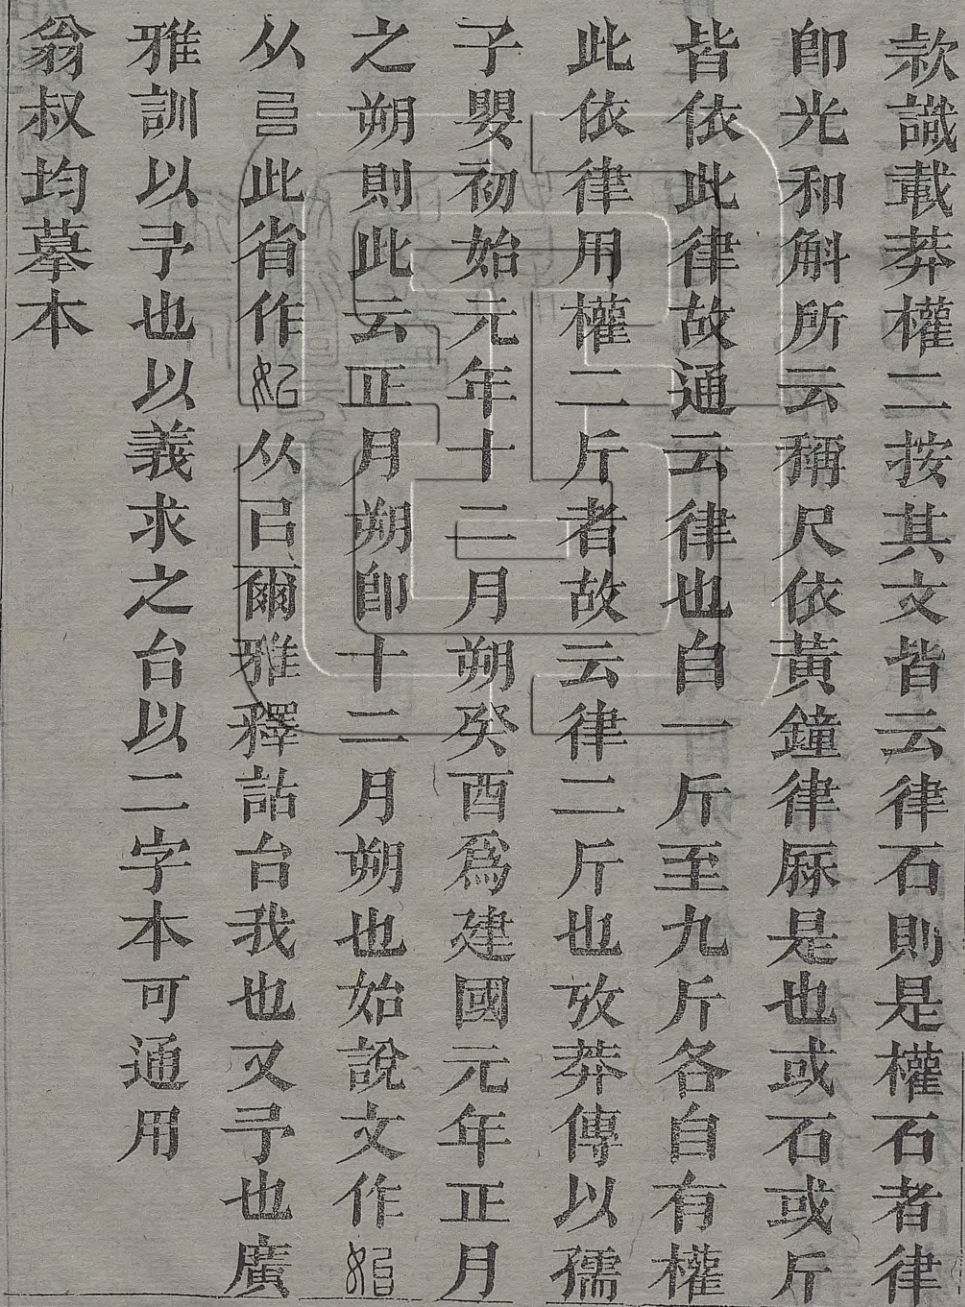 款識載莽權二按其文皆云律石則是權石者律
卽光和斛所云稱尺依黃鐘律厤是也或石或斤
皆依此律故通云律也自一斤至九斤各自有權
此依律用權二斤者故云律二斤也攷莽傳以孺
子嬰初始元年十二月朔癸酉爲建國元年正月
之朔則此云正月朔卽十二月朔也始說文作
从此省作从㠯爾雅釋詁台我也又予也廣
雅訓以予也以義求之台以二字本可通用
翁叔均摹本